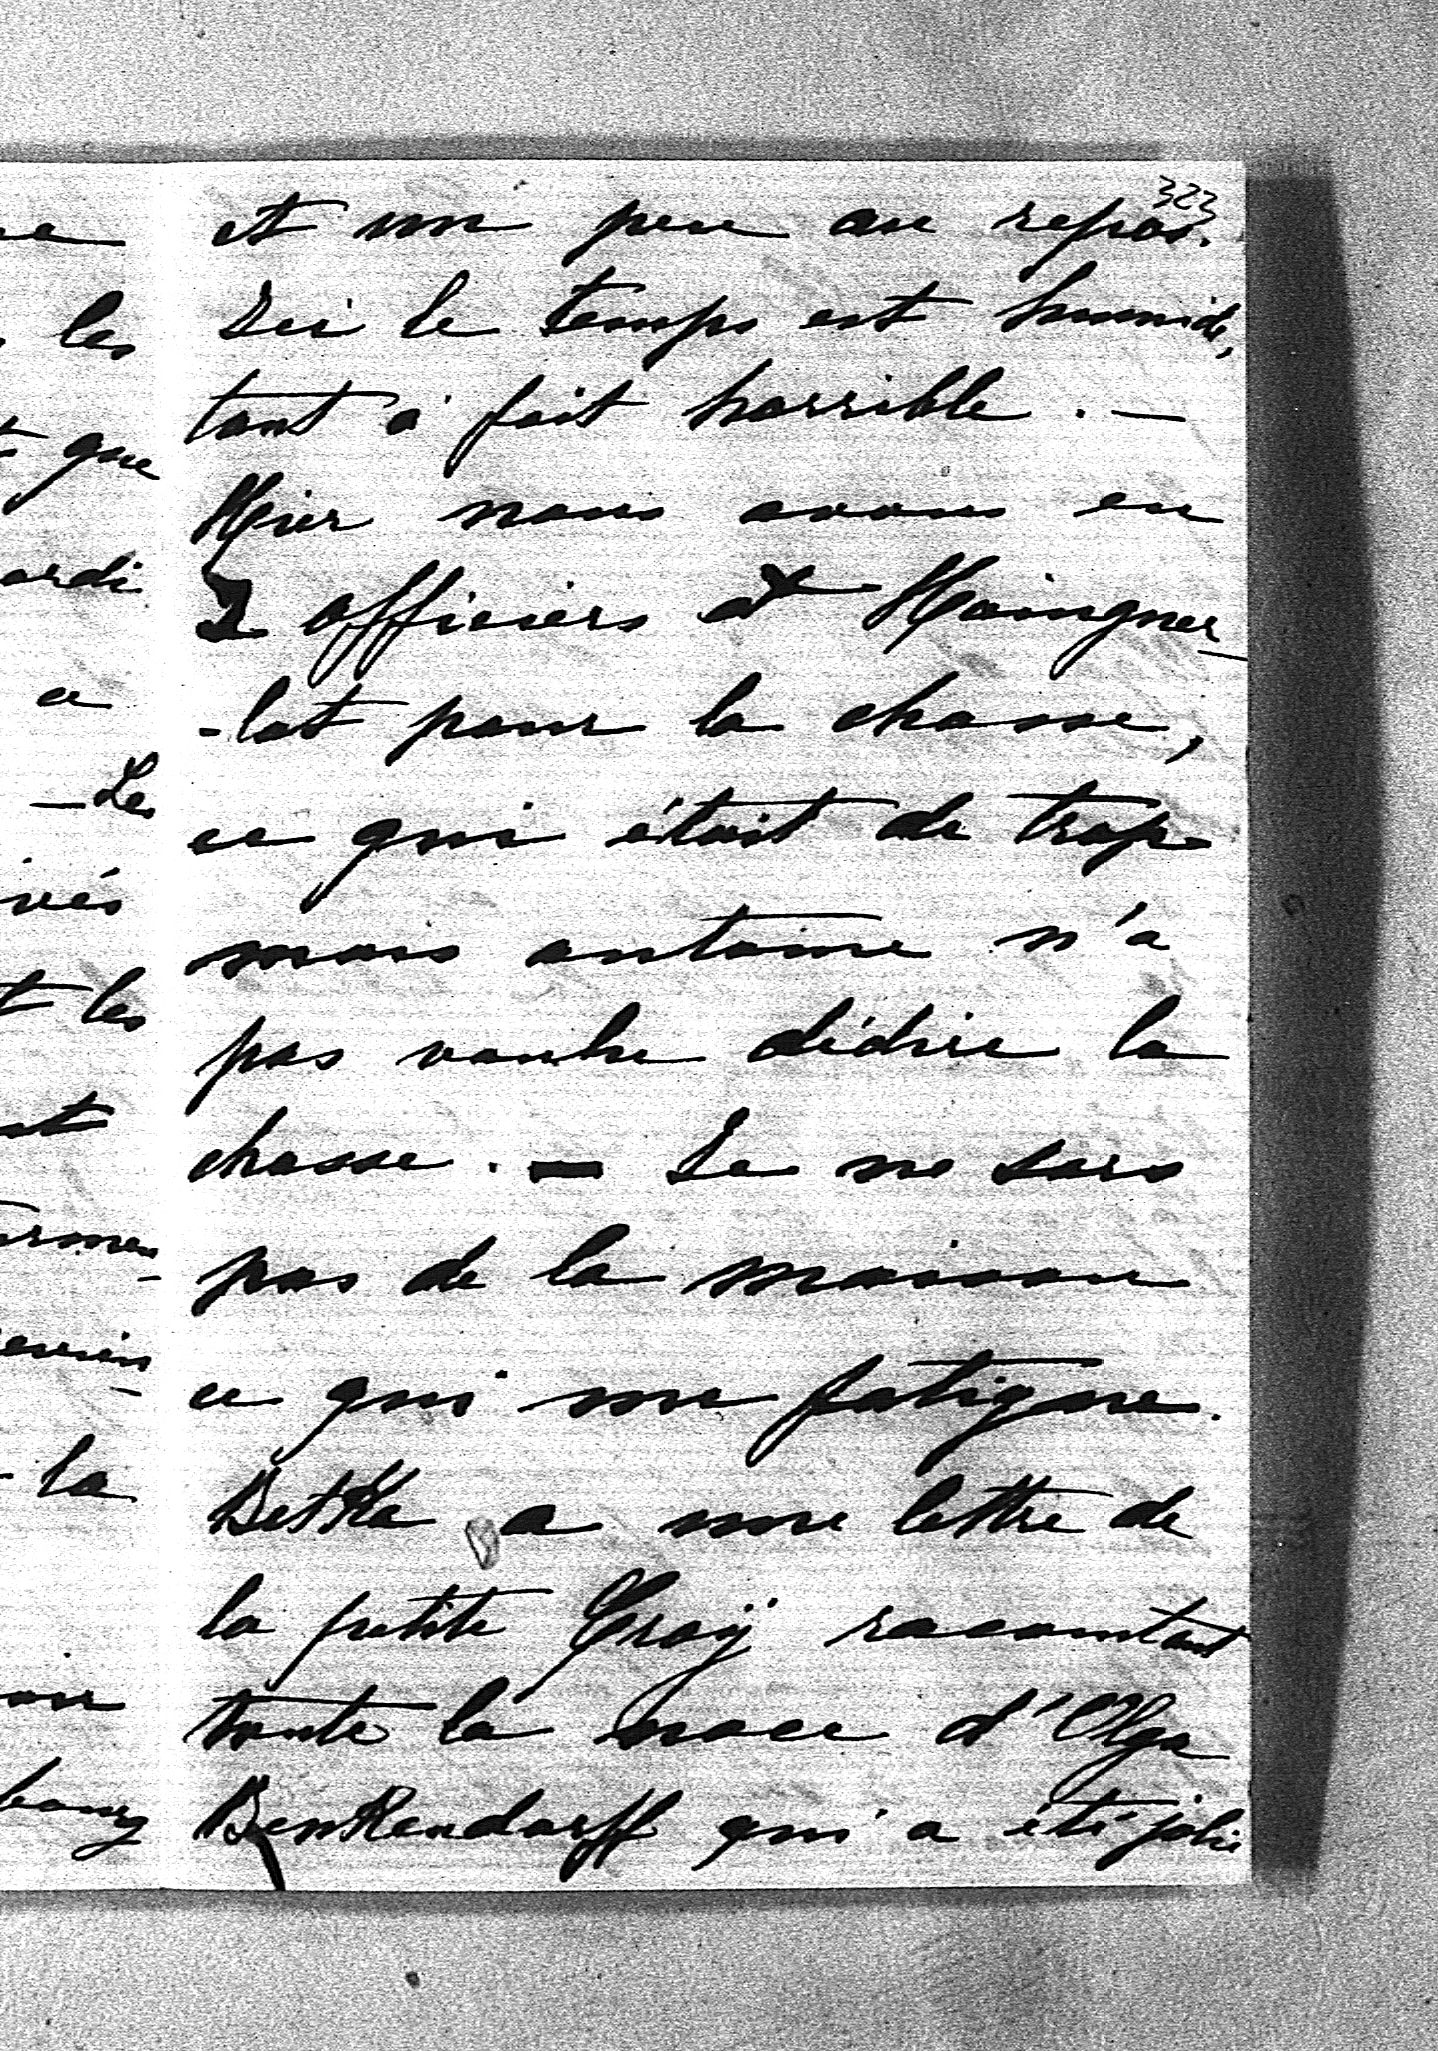 323
et un peu au repos.
Ici le temps est humide,
tout à fait horrible. —
Hier nous avons eu
2 officiers et
-lat pour la chasse,
ce qui était de trop
mais Antoine n'a
pas voulu dédire la
chasse. — Je ne sors
pas de la maison
ce qui me fatigue.
Betka a une lettre de
la petite Croÿ racontant
toute la noce d'Olga
Benkendorff qui a été jolie
les
que
ardi
a
— Les
ivés
t les
la